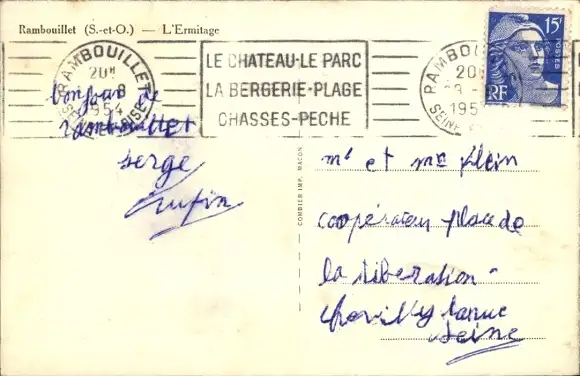 Rambouillet (S.-et-O.) — L'Ermitage
RAMBOUILLET
20H
1954
LE CHATEAU-LE PARC
LA BERGERIE-PLAGE
CHASSES-PECHE
RAMBOU
20
195
SEINE
15F
POSTES
RF
bonjour de
rambouillet
serge
COMBIER IMP. MACON
mr et me
coopérateur place de
la libération
Chevilly larue
Seine